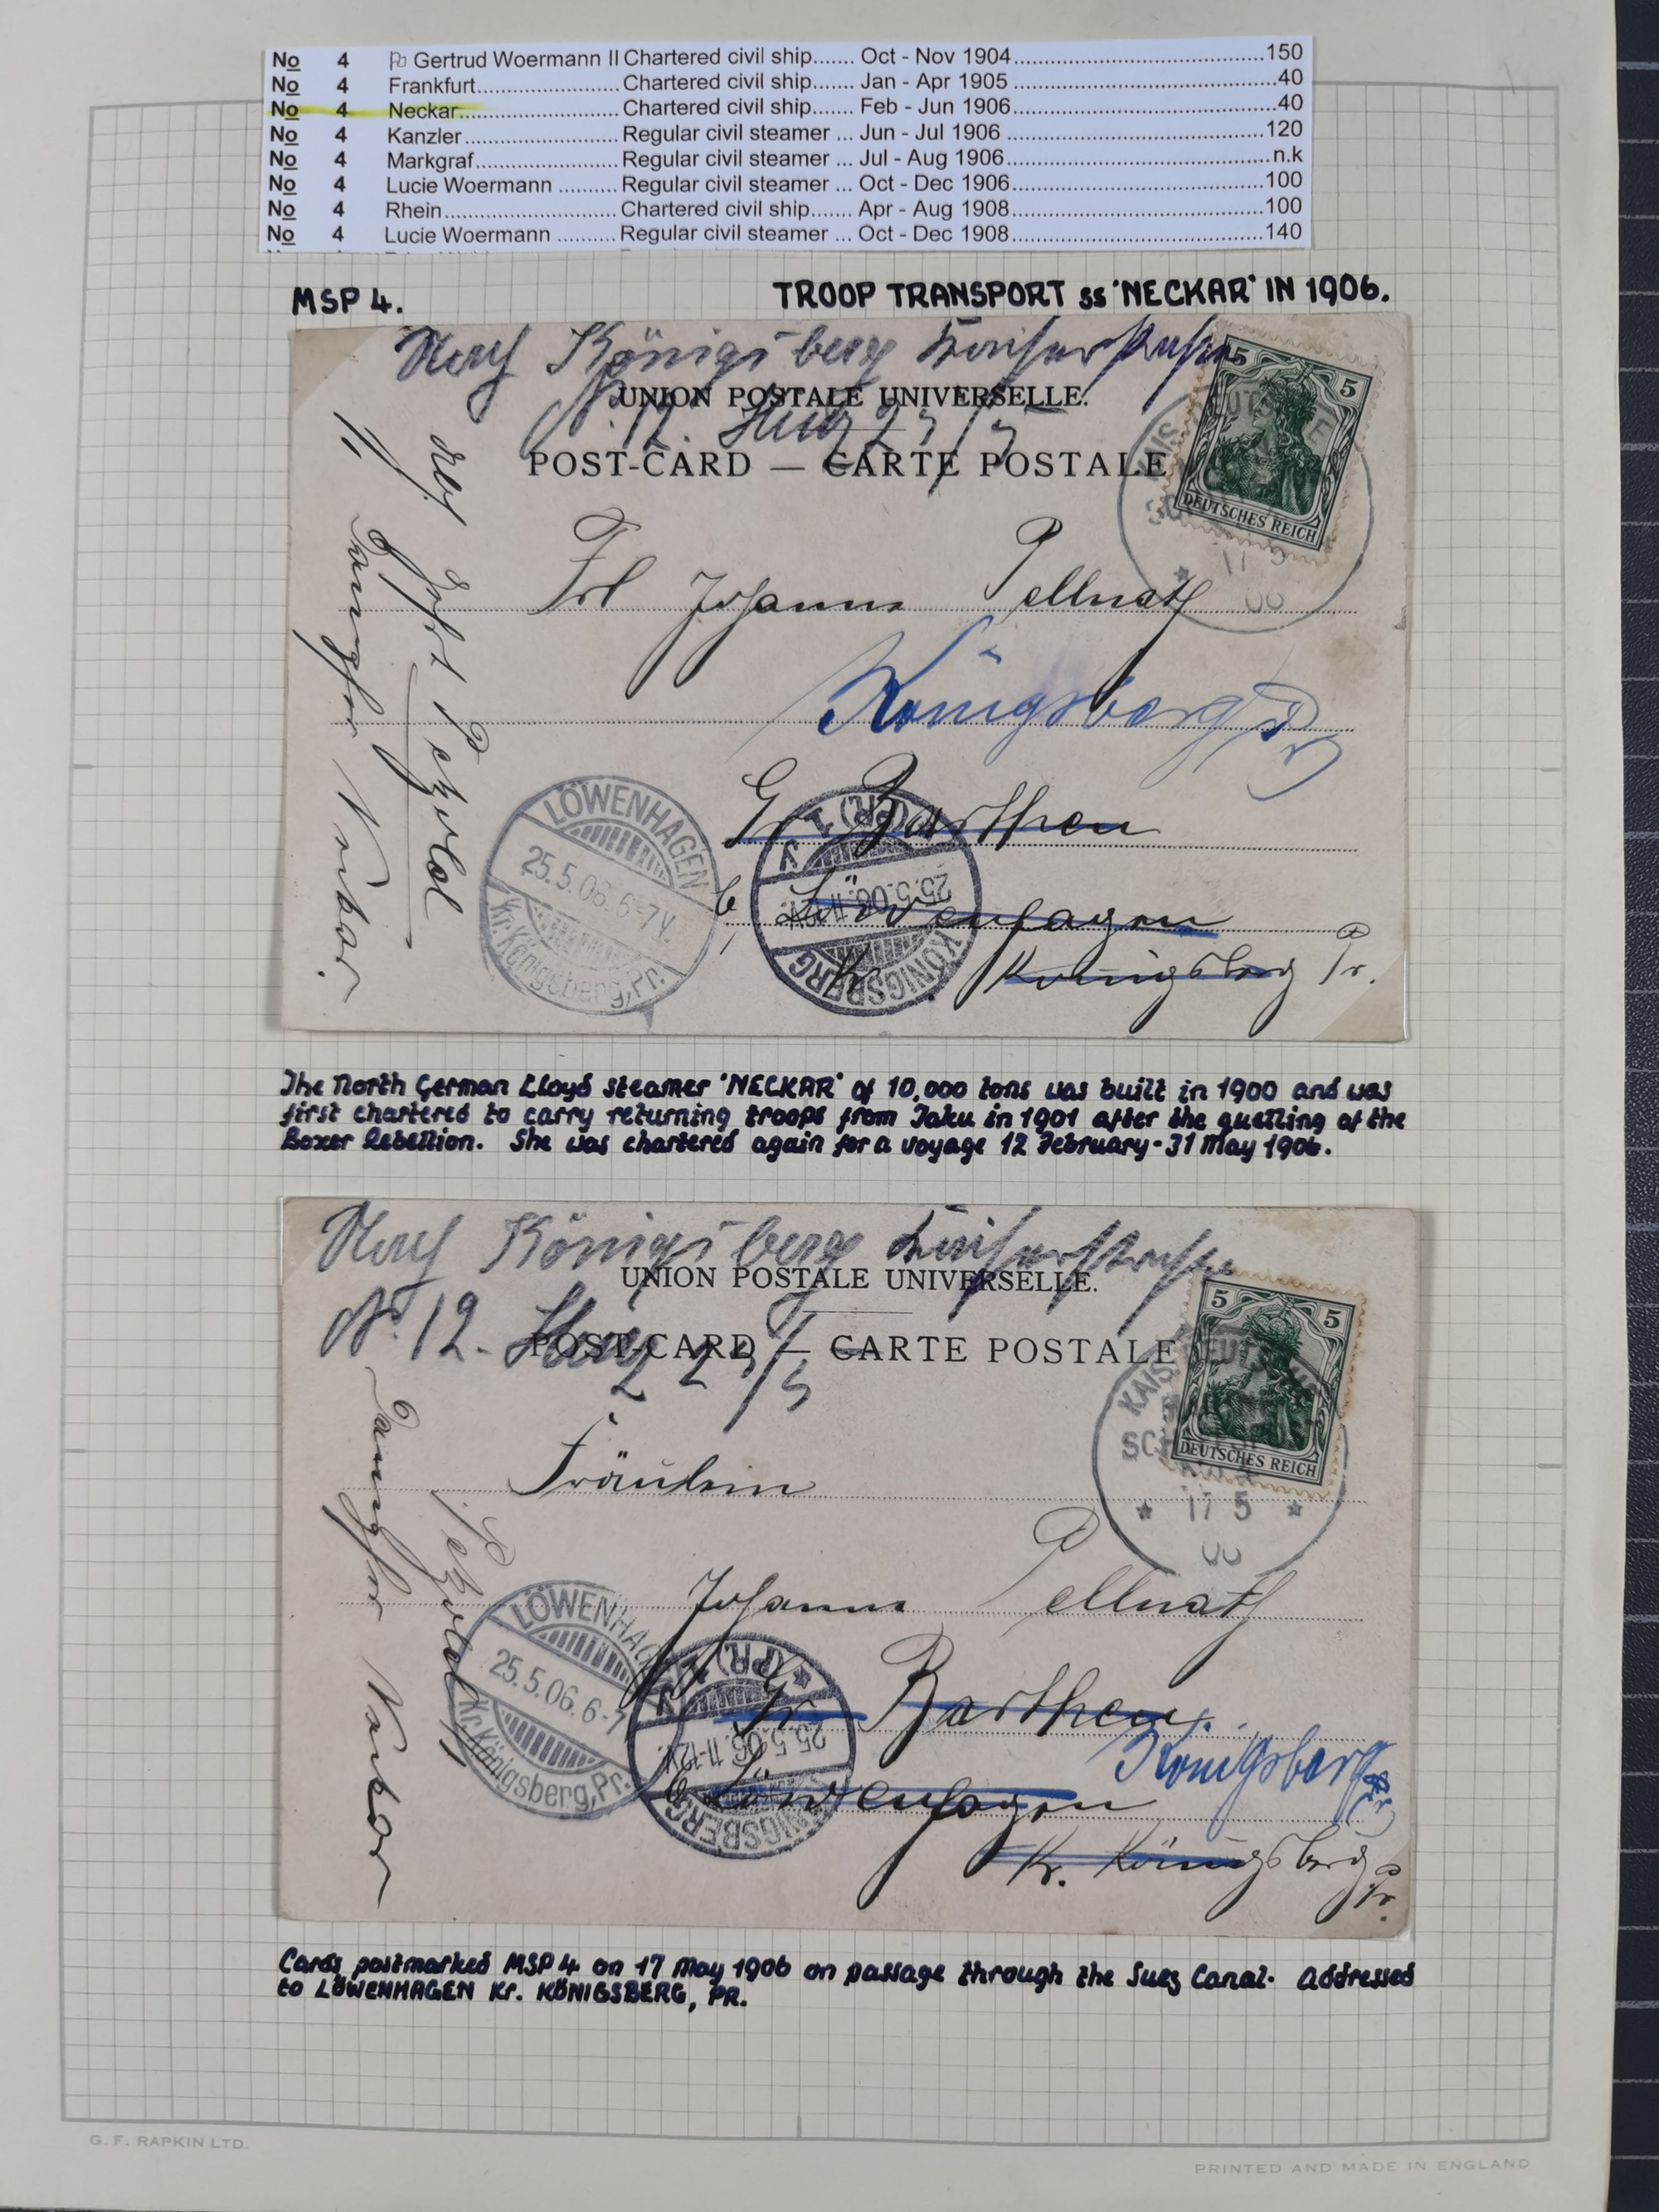 No 4 Gertrud Woermann II Chartered civil ship....... Oct - Nov 1904..........150
No 4 Frankfurt..........Chartered civil ship....... Jan - Apr 1905 ..........40
No 4 Neckar..........Chartered civil ship....... Feb - Jun 1906..........40
No 4 Kanzler..........Regular civil steamer ... Jun - Jul 1906 ..........120
No 4 Markgraf..........Regular civil steamer ... Jul - Aug 1906..........n.k
No 4 Lucie Woermann ..........Regular civil steamer ... Oct - Dec 1906..........100
No 4 Rhein..........Chartered civil ship....... Apr - Aug 1908..........100
No 4 Lucie Woermann ..........Regular civil steamer ... Oct - Dec 1908..........140
MSP 4. TROOP TRANSPORT ss 'NECKAR' IN 1906.
Nach Königsberg Kaiserstrasse
N. 12.
UNION POSTALE UNIVERSELLE.
POST-CARD — CARTE POSTALE
5 5
DEUTSCHES REICH
Frl Johanna Pellnath
Königsberg Pr
Gr Barthen
b. Löwenhagen
Kr Königsberg Pr.
Dampfer Neckar.
LÖWENHAGEN
25.5.06.6-7V.
Kr. Königsberg, Pr.
KÖNIGSBERG (PR.) 1
25.5.06.11-12V.
The North German Lloyd steamer 'NECKAR' of 10,000 tons was built in 1900 and was
first chartered to carry returning troops from Taku in 1901 after the quelling of the
Boxer Rebellion. She was chartered again for a voyage 12 February - 31 May 1906.
Nach Königsberg Kaiserstrasse
N. 12.
UNION POSTALE UNIVERSELLE.
POST-CARD — CARTE POSTALE
5 5
DEUTSCHES REICH
* 17 5 *
Fräulein
Johanna Pellnath
Gr Barthen.
Königsberg Pr
b. Löwenhagen
Kr. Königsberg Pr.
Dampfer Neckar
LÖWENHAGEN
25.5.06.6-7
Kr. Königsberg, Pr.
KÖNIGSBERG (PR.)
25.5.06.11-12V.
Cards postmarked MSP 4 on 17 May 1906 on passage through the Suez Canal. Addressed
to LÖWENHAGEN Kr. KÖNIGSBERG, PR.
G. F. RAPKIN LTD.
PRINTED AND MADE IN ENGLAND